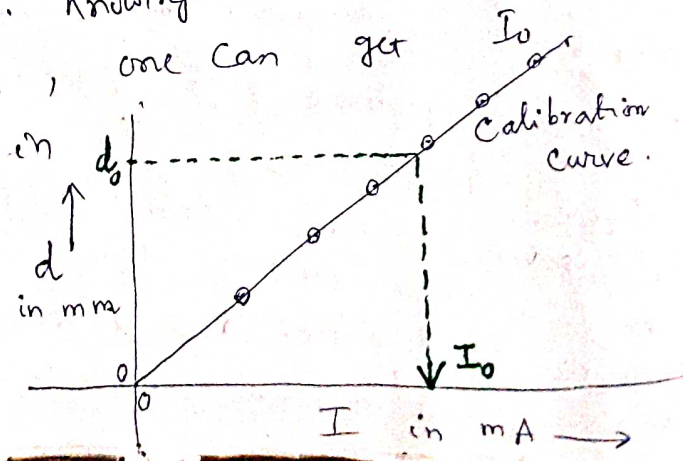 . Knowing
, one can get I₀
Calibration
curve.
in
d₀
d
in mm
0
0
I₀
I in mA